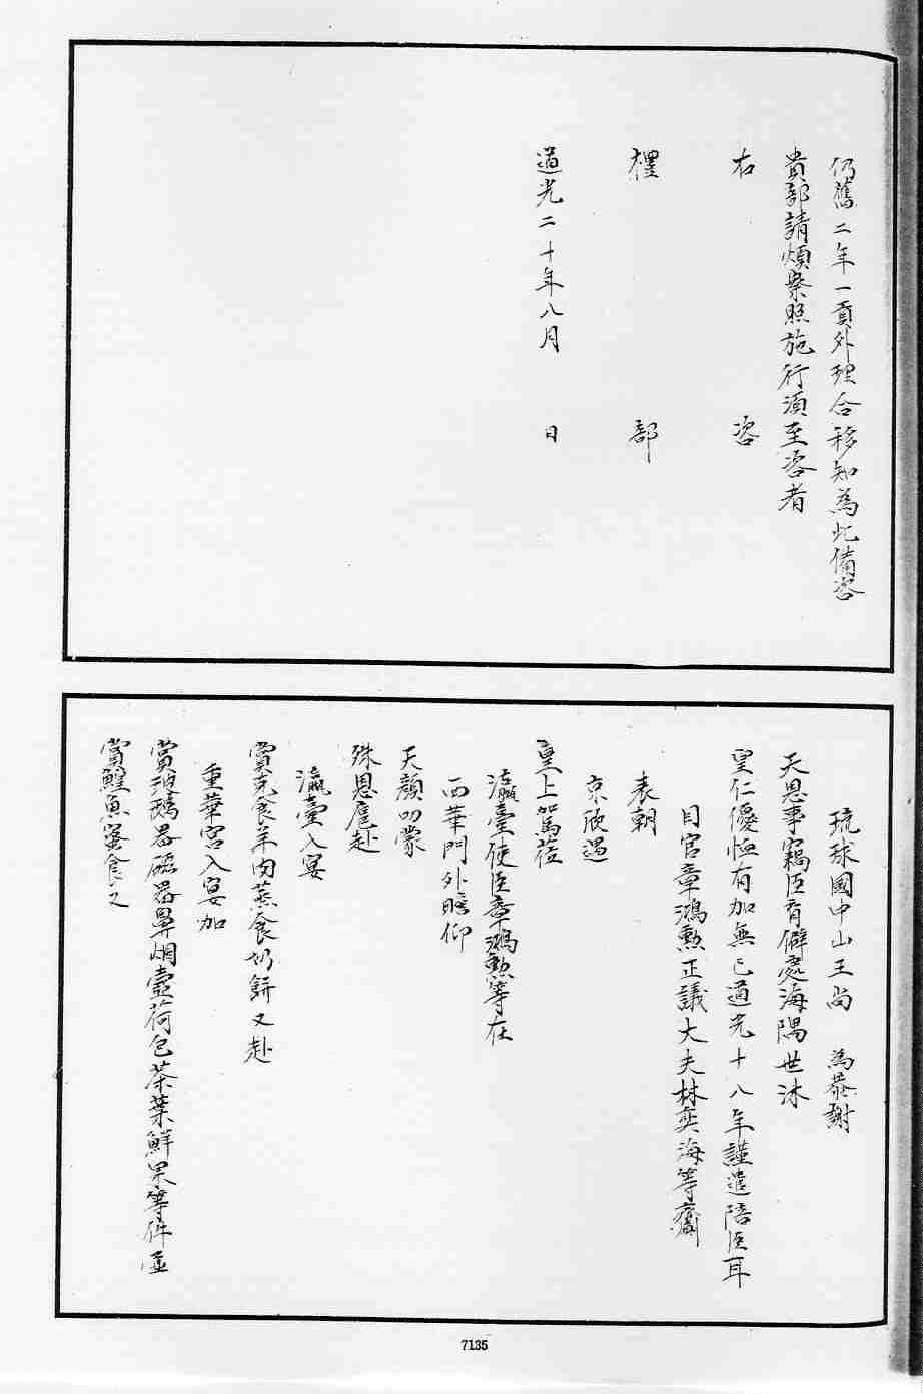 仍舊二年一貢外理合移知為此備咨
貴部請煩察照施行須至咨者
右 咨
禮 部
道光二十年八月 日
琉球國中山王尚 為恭謝
天恩事竊臣育僻處海隅世沐
皇仁優恤有加無已道光十八年謹遣陪臣耳
目官章鴻勲正議大夫林奕海等齎
表朝
京欣遇
皇上駕蒞
瀛臺使臣章鴻勲等在
西華門外瞻仰
天顏叨蒙
殊恩扈赴
瀛臺入宴
賞克食羊肉蒸食奶餅又赴
重華宮入宴加
賞玻璃器磁器鼻烟壺荷包茶葉鮮果等件並
賞鰉魚蜜食之
7135